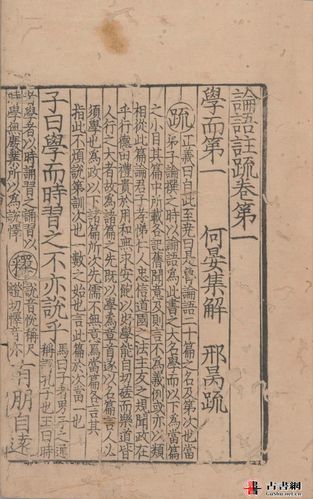 論語註疏卷第一
學而第一 何晏集解 邢昺疏
疏
正義曰自此至堯曰是魯論語二十篇之名及第次也當
弟子論撰之時以論語為此書之大名學而以下為當篇
之小目其篇中所載各記舊聞意及則言不為義例或亦以類
相從此篇論君子孝弟仁人忠信道國之法主友之規聞政在
乎行德由禮貴於用和無求安飽以好學能自切磋而樂道皆
人行之大者故為諸篇之先既以學為章首遂以名篇言人必
須學也為政以下諸篇所次先儒不無意焉當篇各言其
指此不煩說第訓次也一數之始也言此篇於次當一也
子曰學而時習之不亦說乎
馬曰子者男子之通
稱謂孔子也王曰時
者學者以時誦習之誦習以
時學無廢業所以為說懌
釋
說音悅稱尺
證切懌音亦
有朋自遠
古書網
GuShu.net.cn